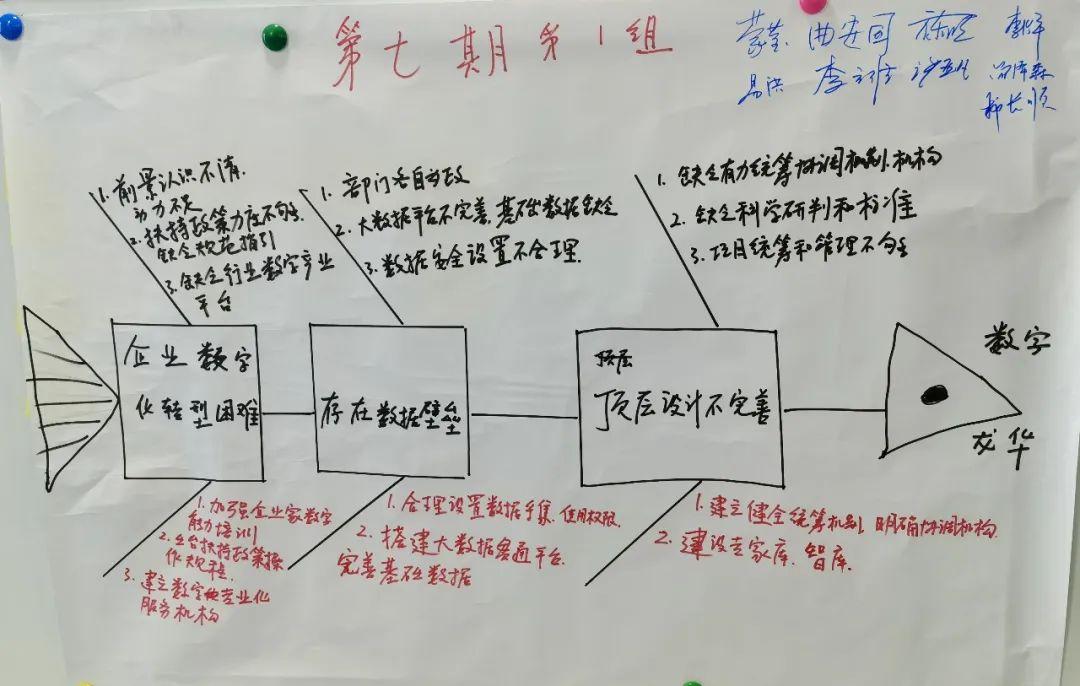 第七期第1组
蒙莹 曲安回
易洪 李
1. 前景认识不清.
动力不足
2. 扶持政策力度不够,
缺乏规范指引
3. 缺乏行业数字产业
平台
1. 部门各自为政
2. 大数据平台不完善,基础数据缺乏
3. 数据安全设置不合理.
1. 缺乏有力统筹协调机制、机构
2. 缺乏科学研判和标准
3. 项目统筹和管理不够
企业数字
化转型困难
存在数据壁垒
顶层
顶层设计不完善
数字
龙华
1. 加强企业家数字
能力培训
2. 出台扶持政策操
作规程.
3. 建立数字化专业化
服务机构
1. 合理设置数据采集、使用权限.
2. 搭建大数据互通平台.
完善基础数据
1. 建立健全统筹机制、明确协调机构.
2. 建设专家库、智库.